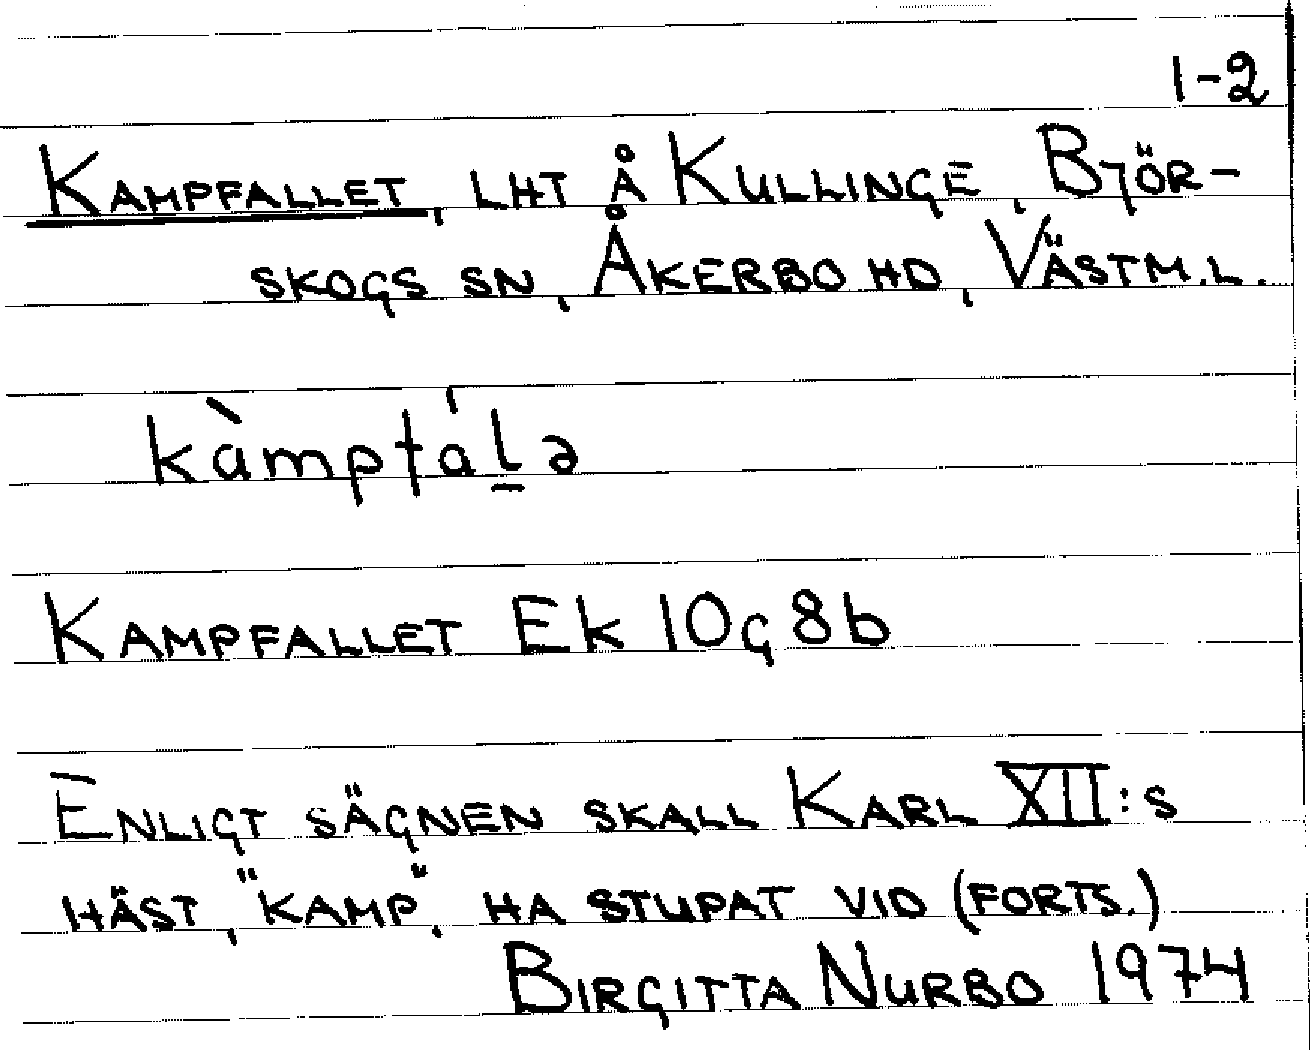 1-2
KAMPFALLET, LHT Å KULLINGE, BJÖR-
SKOGS SN, ÅKERBO HD, VÄSTM.L.
kàmpfáḻə
KAMPFALLET Ek 10g 8b
ENLIGT SÄGNEN SKALL KARL XII:S
HÄST, "KAMP", HA STUPAT VID (FORTS.)
BIRGITTA NURBO 1974